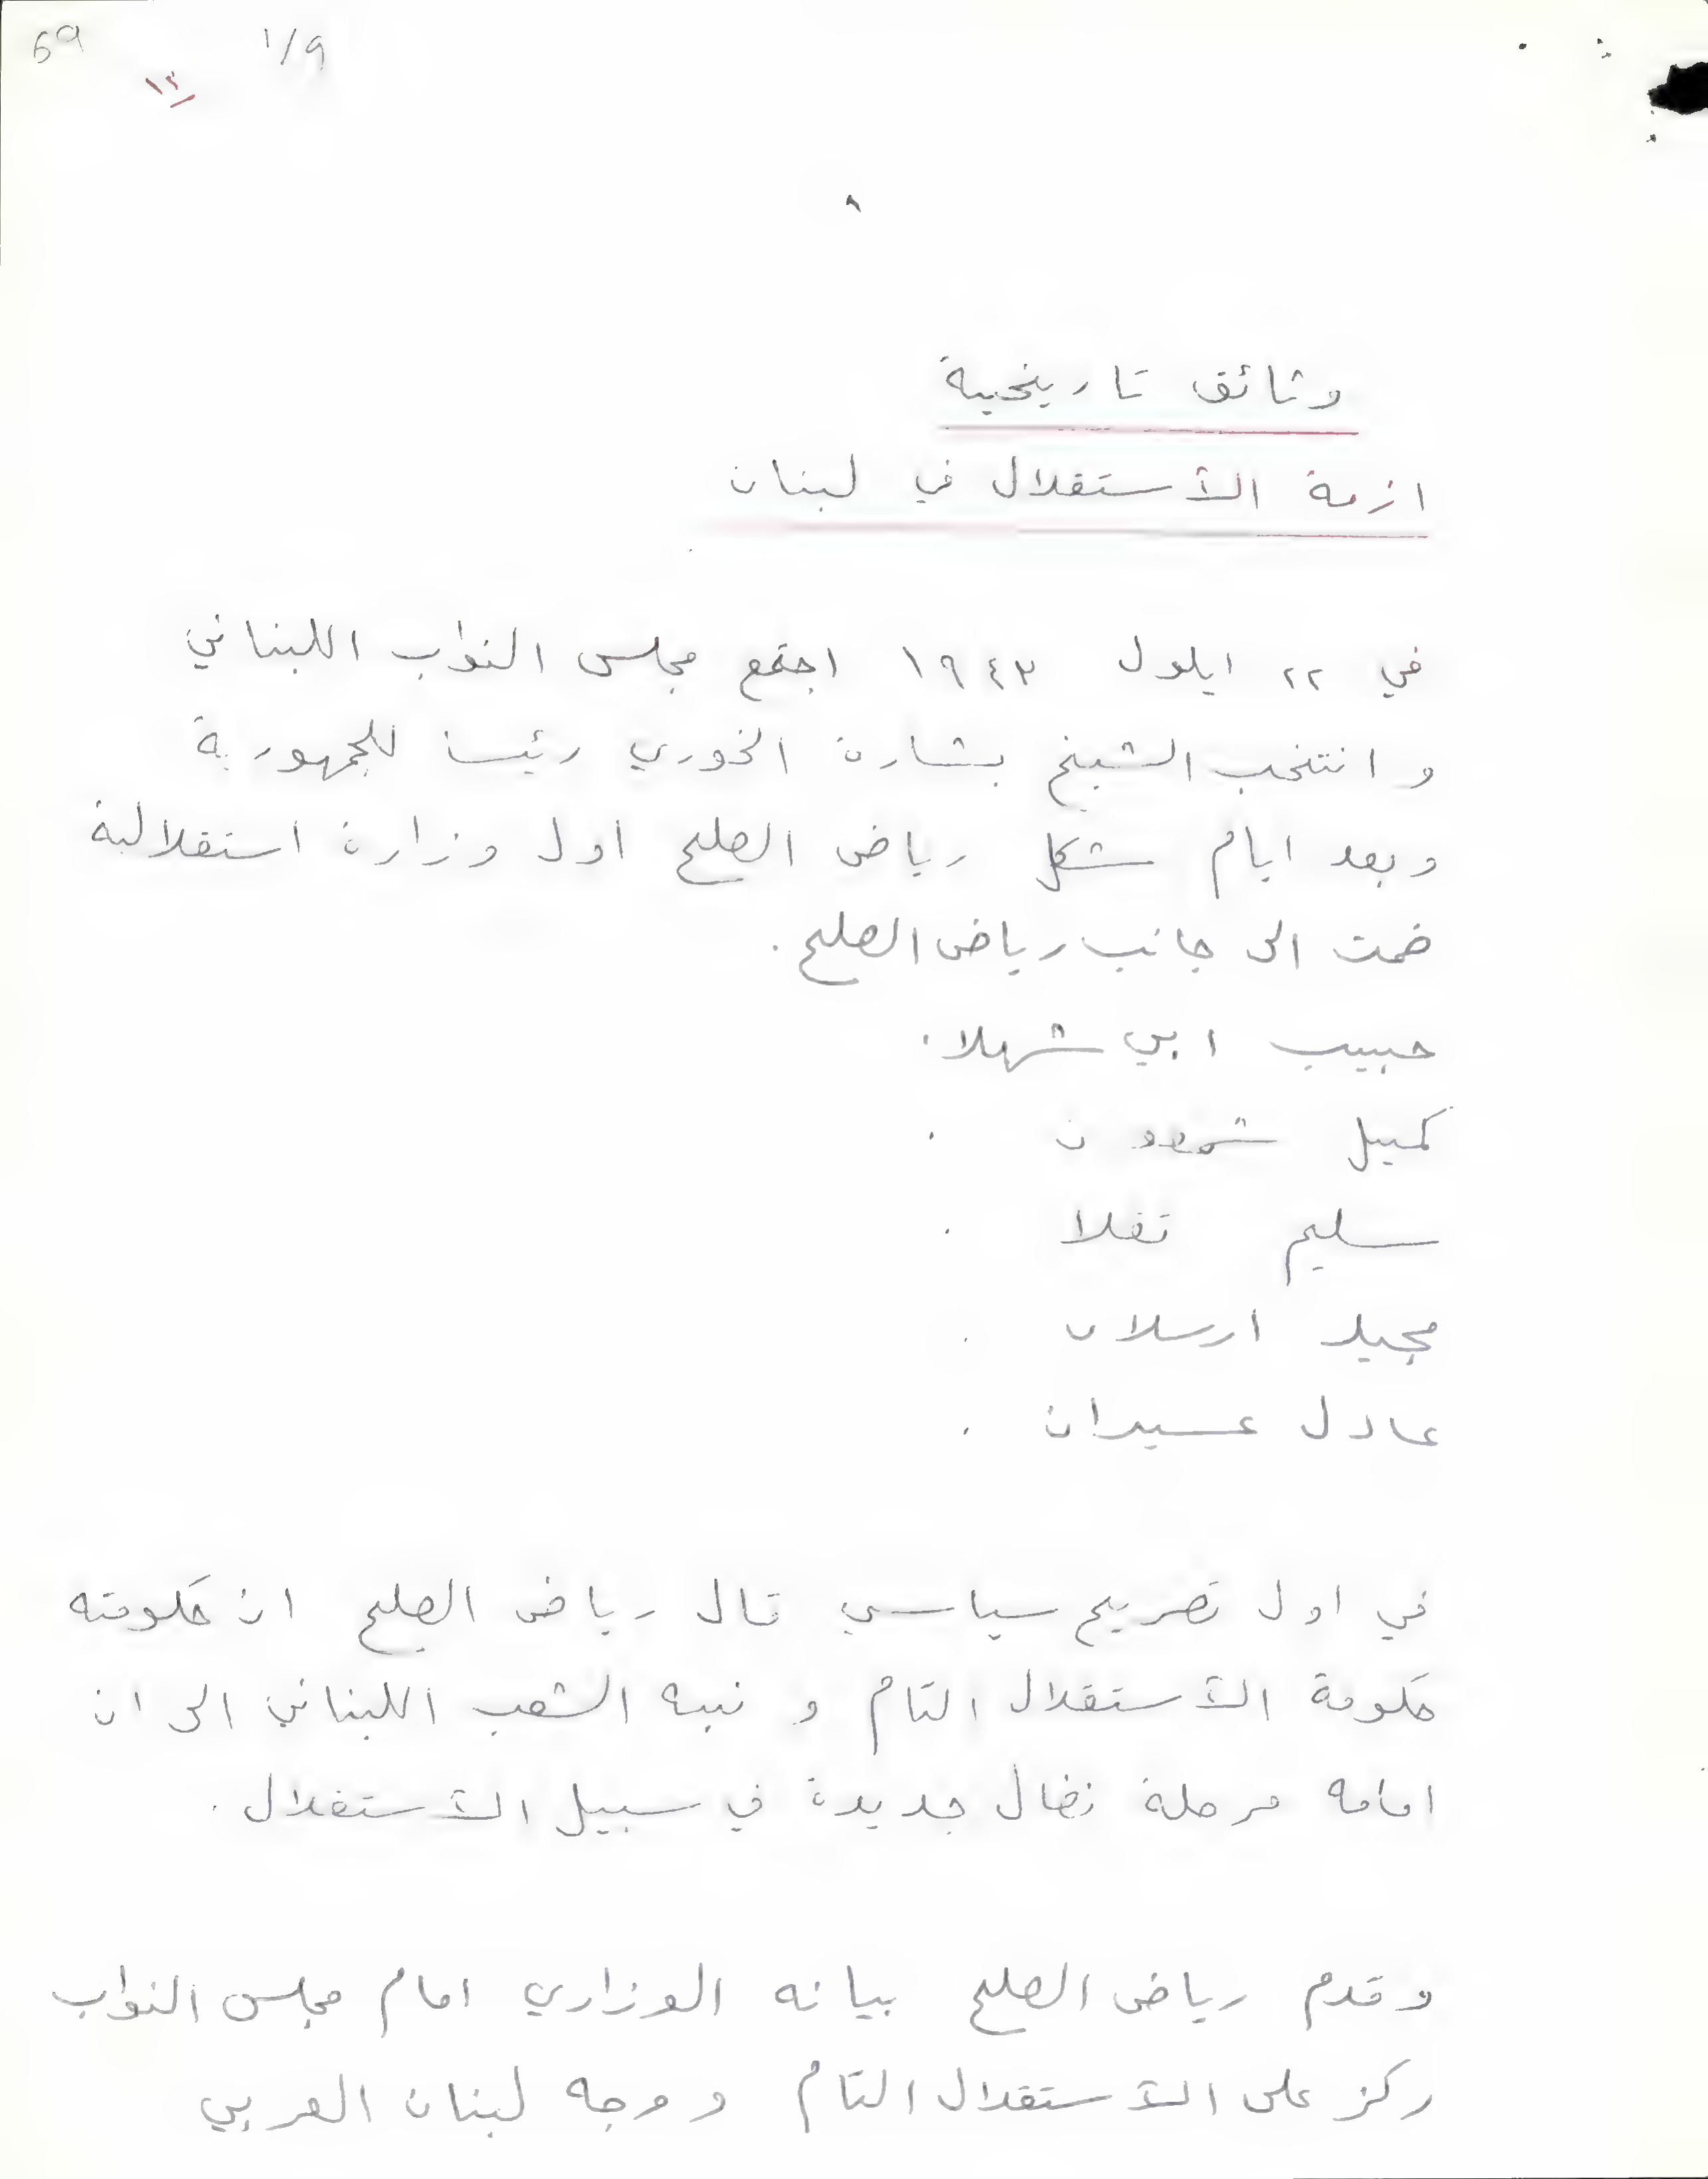 69
١/٩
١٢
وثائق تاريخية
ازمة الأستقلال في لبنان
في ٢٢ ايلول ١٩٤٣ اجتمع مجلس النواب اللبناني
و انتخب الشيخ بشارة الخوري رئيسا للجمهورية
وبعد ايام شكل رياض الصلح اول وزارة استقلالية
ضمت الى جانب رياض الصلح .
حبيب ابي شهلا .
كميل شمعون .
سليم تقلا .
مجيد ارسلان .
عادل عسيران .
في اول تصريح سياسي قال رياض الصلح ان حكومته
حكومة الأستقلال التام و نبه الشعب اللبناني الى ان
امامه مرحلة نضال جديدة في سبيل الأستقلال .
وقدم رياض الصلح بيانه الوزاري امام مجلس النواب
ركز على الأستقلال التام و وجه لبنان العربي